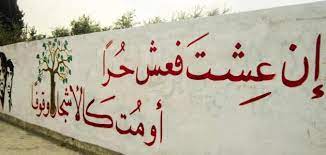 إن عِشتَ فعش حُراً
أو مُت كالأشجار وقوفا